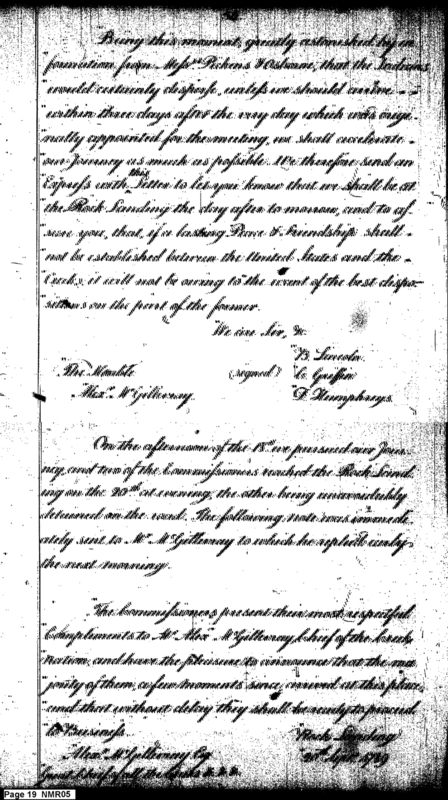 "Being this moment, greatly astonished by in
"formation from Messrs Pickens & Osborne, that the Indians
"would certainly disperse, unless we should arrive
"within three days after the very day which was origi
"nally appointed for the meeting, we shall accelerate
"our Journey as much as possible. We therefore send an
"Express with this Letter to let you know that we shall be at
"the Rock Landing the day after to morrow, and to as
"sure you, that, if a lasting Peace & Friendship shall
"not be established between the United States and the
"Creeks, it will not be owing to the want of the best dispo
"sitions on the part of the former.
"We are Sir, &c
"B. Lincoln
"The Honble (signed) "C. Griffin
"Alexr McGillivray. "D. Humphreys.
On the afternoon of the 18th we pursued our Jour
ney, and two of the Commissioners reached the Rock Land
ing on the 20th at evening, the other being unavoidably
detained on the road. The following note was immedi
ately sent to Mr McGillivray to which he replied early
the next morning.
"The Commissioners present their most respectful
"Complements to Mr Alexr McGillivray, Chief of the Creek
"nation, and have the pleasure to announce that the ma
"jority of them, a few moments since, arrived at this place,
"and that without delay they shall be ready to proceed
"to Business. "Rock Landing
"Alexr McGillivray Esq "20th Sept 1789
"Great Chief of all the
Page 19 NMR05